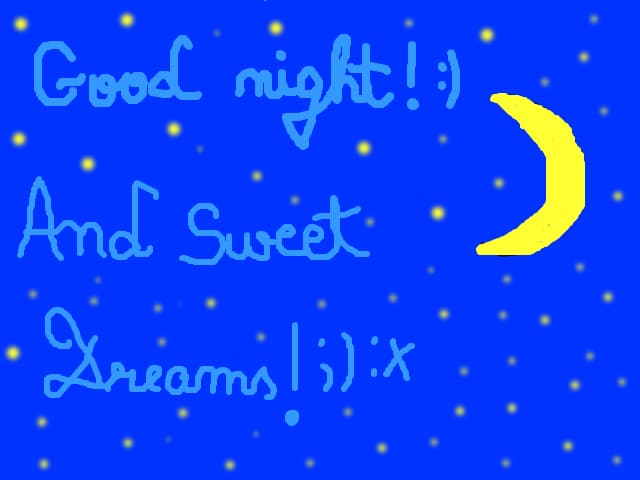 Good night! :)
And Sweet
Dreams! ;) :x